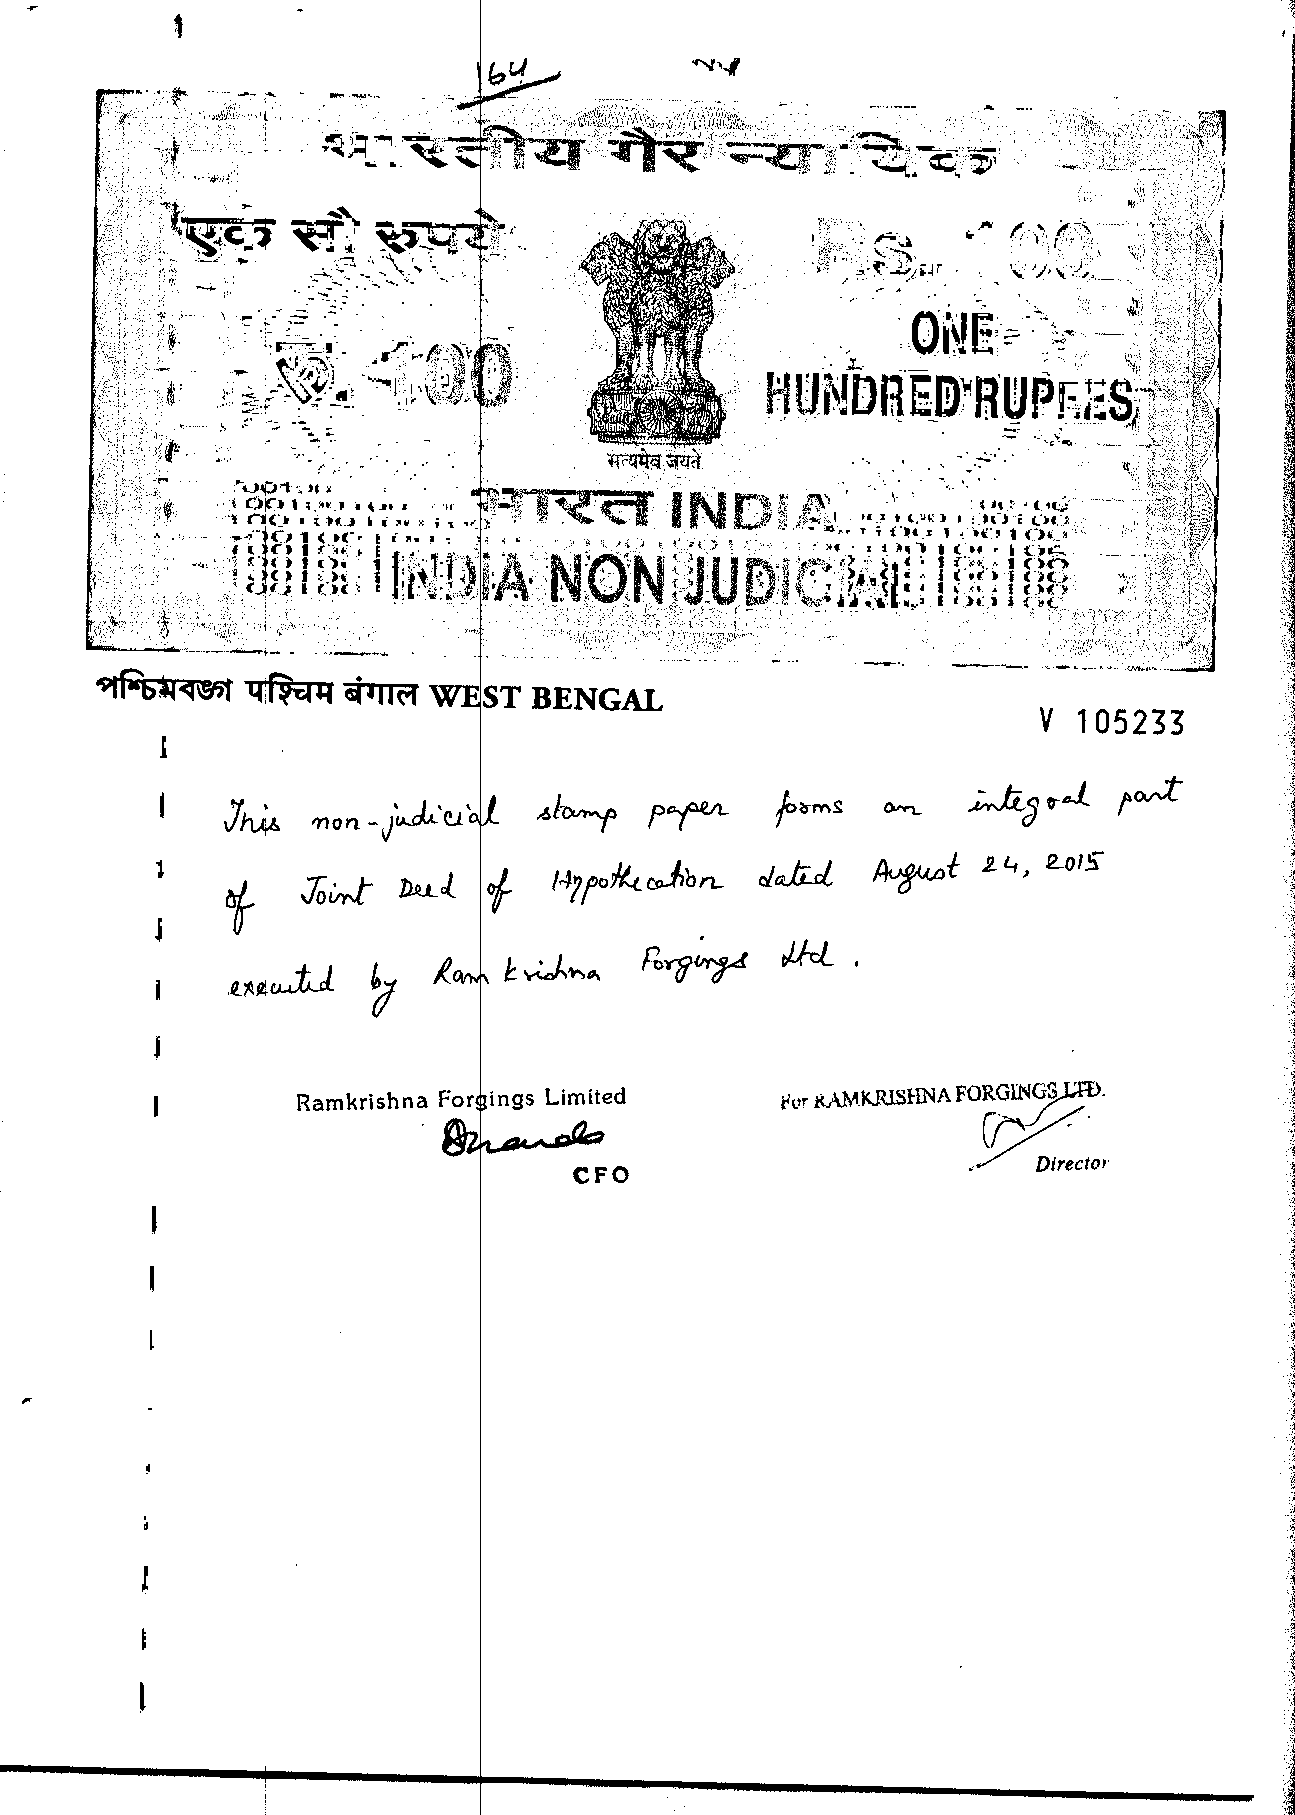 64
भारतीय गैर न्यायिक
एक सौ रुपये
Rs. 100
रु. 100
ONE
HUNDRED RUPEES
सत्यमेव जयते
भारत INDIA
INDIA NON JUDICIAL
পশ্চিমবঙ্গ पश्चिम बंगाल WEST BENGAL
V 105233
This non-judicial stamp paper forms an integral part
of Joint Deed of Hypothecation dated August 24, 2015
executed by Ramkrishna Forgings Ltd.
Ramkrishna Forgings Limited
CFO
For RAMKRISHNA FORGINGS LTD.
Director